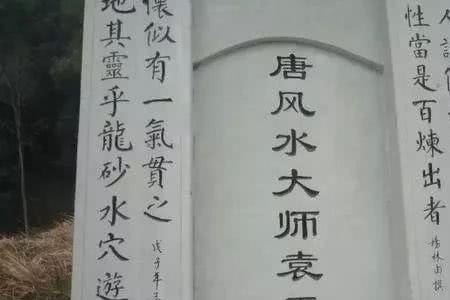 性當是百煉出者
唐风水大师袁
懷似有一氣貫之
戊子年
地其靈乎龍砂水穴遊